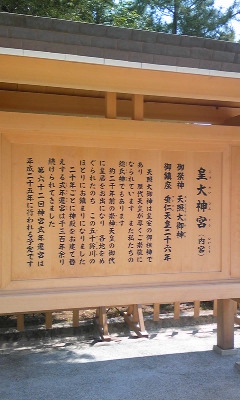 皇大神宮（内宮）
御祭神 天照大御神
御鎮座 垂仁天皇二十六年
天照大御神は皇室の御祖神で
あり、歴代天皇が厚くご崇敬に
なられています。また私たちの
総氏神でもあります。
約二千年前の崇神天皇の御代
に皇居をお出になり、各地をめ
ぐられたのち、この五十鈴川の
ほとりにお鎮まりになりました。
二十年ごとに神殿をお建て替
えする式年遷宮は千三百年余り
続けられてきました。
第六十二回神宮式年遷宮は
平成二十五年に行われる予定です。